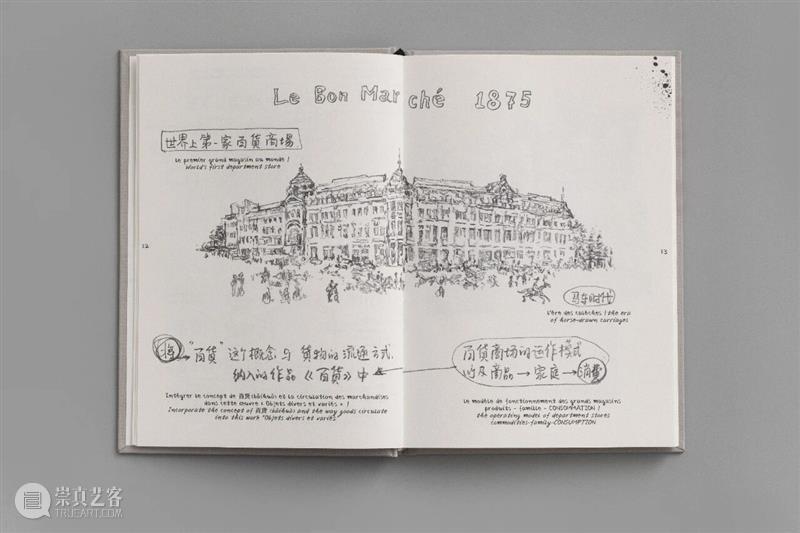 Le Bon Marché 1875
世界上第一家百货商場
Le premier grand magasin au monde /
World's first department store
12
13
马车时代
L'ère des calèches / the era
of horse-drawn carriages
将→"百貨"这个概念与貨物的流通方式
纳入的作品《百貨》中
Intégrer le concept de 百貨 (bǎihuò) et la circulation des marchandises
dans cette œuvre « Objets divers et variés » /
Incorporate the concept of 百貨 (bǎihuò) and the way goods circulate
into this work "Objets divers et variés"
百貨商场的运作模式
以及商品→家庭→消费
Le modèle de fonctionnement des grands magasins
produits - famille - CONSOMMATION /
the operating model of department stores
commodities-family-CONSUMPTION
崇真艺客
TRUEART.COM